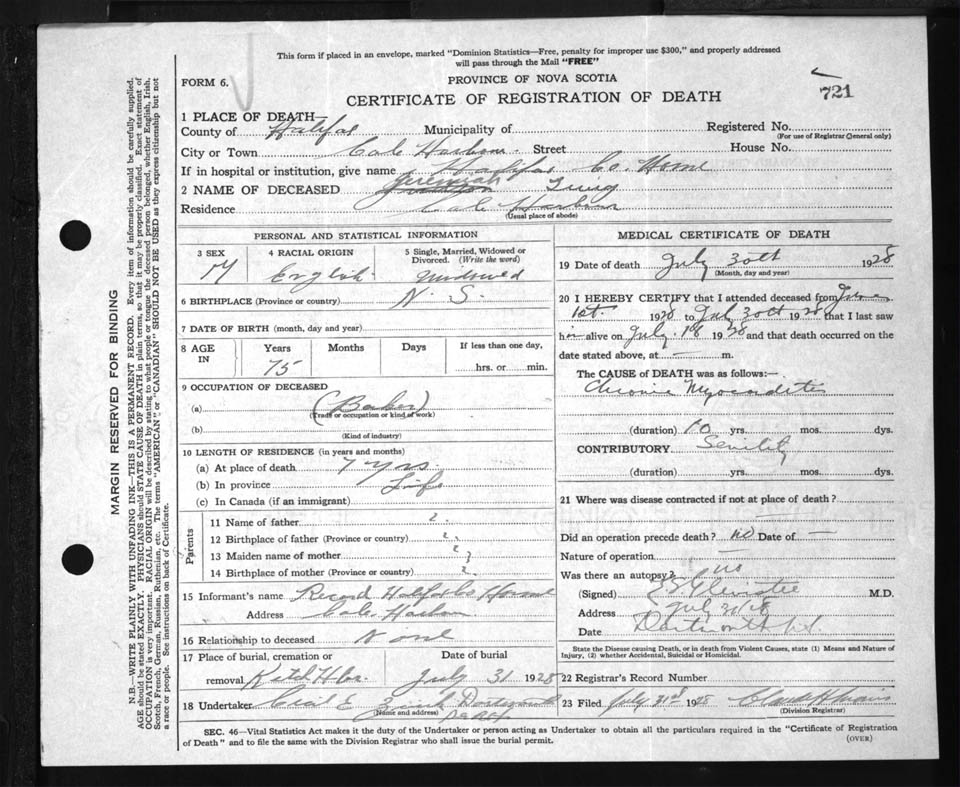 This form if placed in an envelope, marked "Dominion Statistics—Free, penalty for improper use $300," and properly addressed
will pass through the Mail "FREE"
FORM 6.
PROVINCE OF NOVA SCOTIA
721
CERTIFICATE OF REGISTRATION OF DEATH
1 PLACE OF DEATH—
County of Halifax Municipality of Registered No.
(For use of Registrar General only)
City or Town Cole Harbour Street House No.
If in hospital or institution, give name Halifax Co. Home
2 NAME OF DECEASED Jeremiah
Residence Cole Harbour
(Usual place of abode)
PERSONAL AND STATISTICAL INFORMATION
3 SEX 4 RACIAL ORIGIN 5 Single, Married, Widowed or Divorced. (Write the word)
M English Widowed
6 BIRTHPLACE (Province or country) N. S.
7 DATE OF BIRTH (month, day and year)
8 AGE IN Years Months Days If less than one day,
75 hrs. or min.
9 OCCUPATION OF DECEASED
(a)
(Trade or occupation or kind of work)
(b)
(Kind of industry)
10 LENGTH OF RESIDENCE (in years and months)
(a) At place of death 7 yrs
(b) In province Life
(c) In Canada (if an immigrant)
Parents
11 Name of father ?
12 Birthplace of father (Province or country) ?
13 Maiden name of mother ?
14 Birthplace of mother (Province or country) ?
15 Informant's name Record Halifax Co Home
Address Cole Harbour
16 Relationship to deceased None
17 Place of burial, cremation or Date of burial
removal July 31 1928
18 Undertaker Dartmouth
(Name and address)
MEDICAL CERTIFICATE OF DEATH
19 Date of death July 30th 1928
(Month, day and year)
20 I HEREBY CERTIFY that I attended deceased from June
1st 1928 to July 30th 1928 that I last saw
him alive on July 18 1928 and that death occurred on the
date stated above, at — m.
The CAUSE of DEATH was as follows:
Chronic Myocarditis
(duration) 10 yrs. mos. dys.
CONTRIBUTORY Senility
(duration) yrs. mos. dys.
21 Where was disease contracted if not at place of death?
—
Did an operation precede death? no Date of —
Nature of operation —
Was there an autopsy? no
(Signed) M.D.
Address July 31/28
Date Dartmouth N.S.
State the Disease causing Death, or in death from Violent Causes, state (1) Means and Nature of
Injury, (2) whether Accidental, Suicidal or Homicidal.
22 Registrar's Record Number
23 Filed July 31st 1928
(Division Registrar)
SEC. 46—Vital Statistics Act makes it the duty of the Undertaker or person acting as Undertaker to obtain all the particulars required in the "Certificate of Registration
of Death" and to file the same with the Division Registrar who shall issue the burial permit.
(OVER)
MARGIN RESERVED FOR BINDING
N.B.—WRITE PLAINLY WITH UNFADING INK—THIS IS A PERMANENT RECORD. Every item of information should be carefully supplied.
AGE should be stated EXACTLY. PHYSICIANS should STATE CAUSE OF DEATH in plain terms, so that it may be properly classified. Exact statement of
OCCUPATION is very important. RACIAL ORIGIN will be described by stating to what people or tongue the deceased person belonged, whether English, Irish,
Scotch, French, German, Russian, Ruthenian, etc. The terms "AMERICAN" or "CANADIAN" SHOULD NOT BE USED as they express citizenship but not
a race or people. See instructions on back of Certificate.